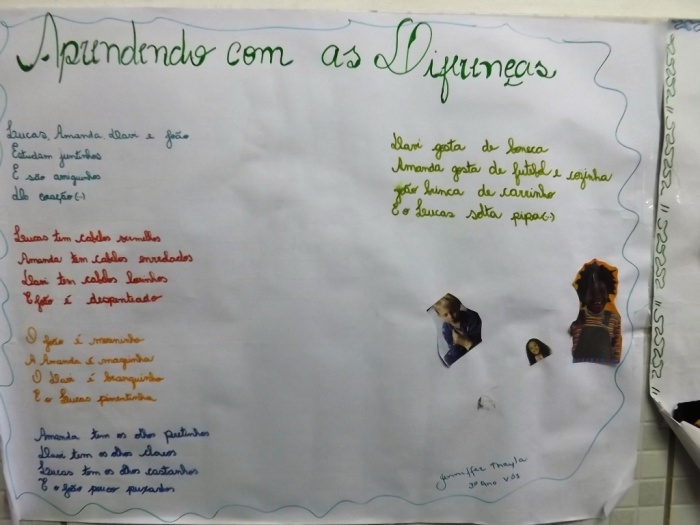 Aprendendo com as Diferenças
Lucas, Amanda, Davi e João
Estudam juntinhos
E são amiguinhos
De coração(.)
Lucas tem cabelos vermelhos
Amanda tem cabelos enrolados
Davi tem cabelos loirinhos
E João é despentiado
O João é moreninho
A Amanda é neguinha
O Davi é branquinho
E o Lucas pimentinha
Amanda tem os olhos pretinhos
Davi tem os olhos claros
Lucas tem os olhos castanhos
E o João pouco puxados
Davi gosta de boneca
Amanda gosta de futebol e cozinha
João brinca de carrinho
E o Lucas solta pipa(.)
Jenniffer Thayla
3º Ano V01